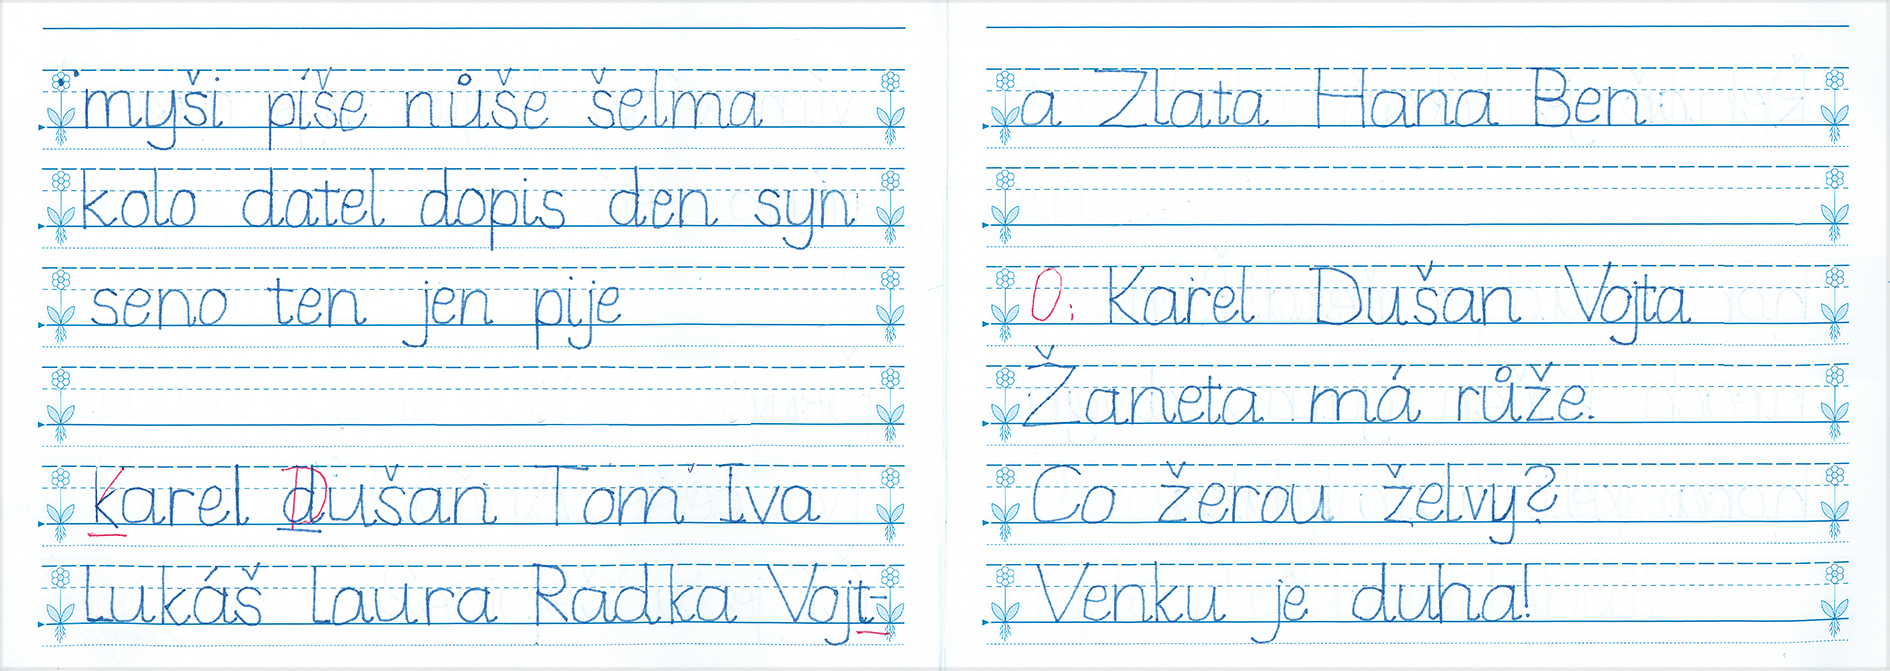 myši píše nůše šelma
kolo datel dopis den syn
seno ten jen pije
karel Dušan Tom Iva
Lukáš Laura Radka Vojt-
a Zlata Hana Ben
O: Karel Dušan Vojta
Žaneta má růže.
Co žerou želvy?
Venku je duha!